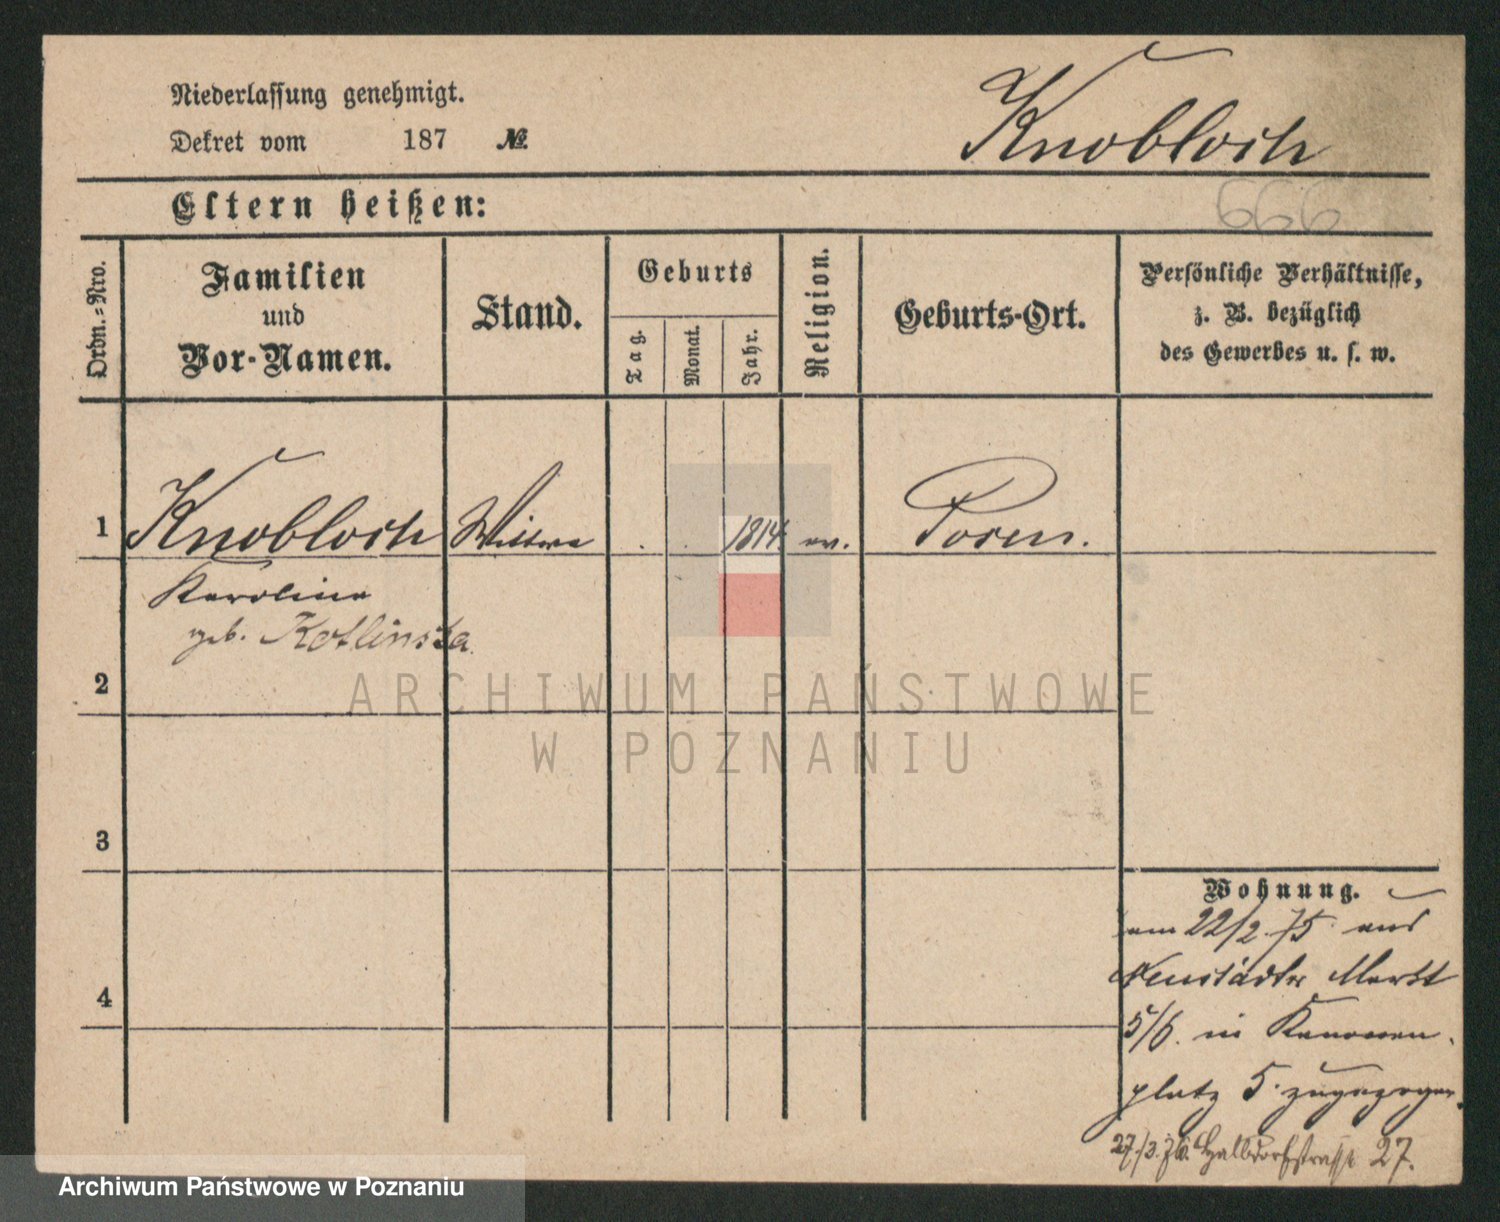 Niederlassung genehmigt.
Dekret vom 187 №
Knobloch
Eltern heißen:
666
Ordn.-Nro.
Familien
und
Vor-Namen.
Stand.
Geburts
Tag.
Monat.
Jahr.
Religion.
Geburts-Ort.
Persönliche Verhältnisse,
z. B. bezüglich
des Gewerbes u. s. w.
1 Knobloch Wittwe . . 1814. ev. Posen.
Karoline
geb. Kotlinska
2
3
4
Wohnung.
am 22/2.75 aus
Neustädter Markt
5/6. in Kanonen-
platz 5. zugezogen.
27./3. Halbdorfstrasse 27.
ARCHIWUM PAŃSTWOWE
W POZNANIU
Archiwum Państwowe w Poznaniu